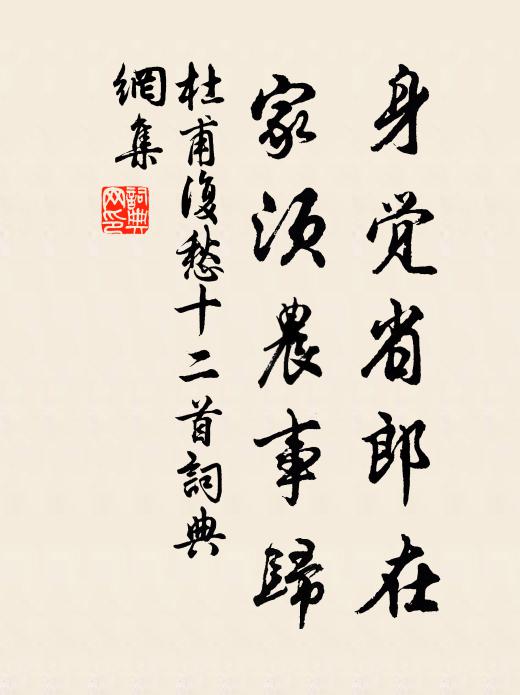 身觉省郎在
家须農事歸
杜甫復愁十二首詞典
網集
詞典网印